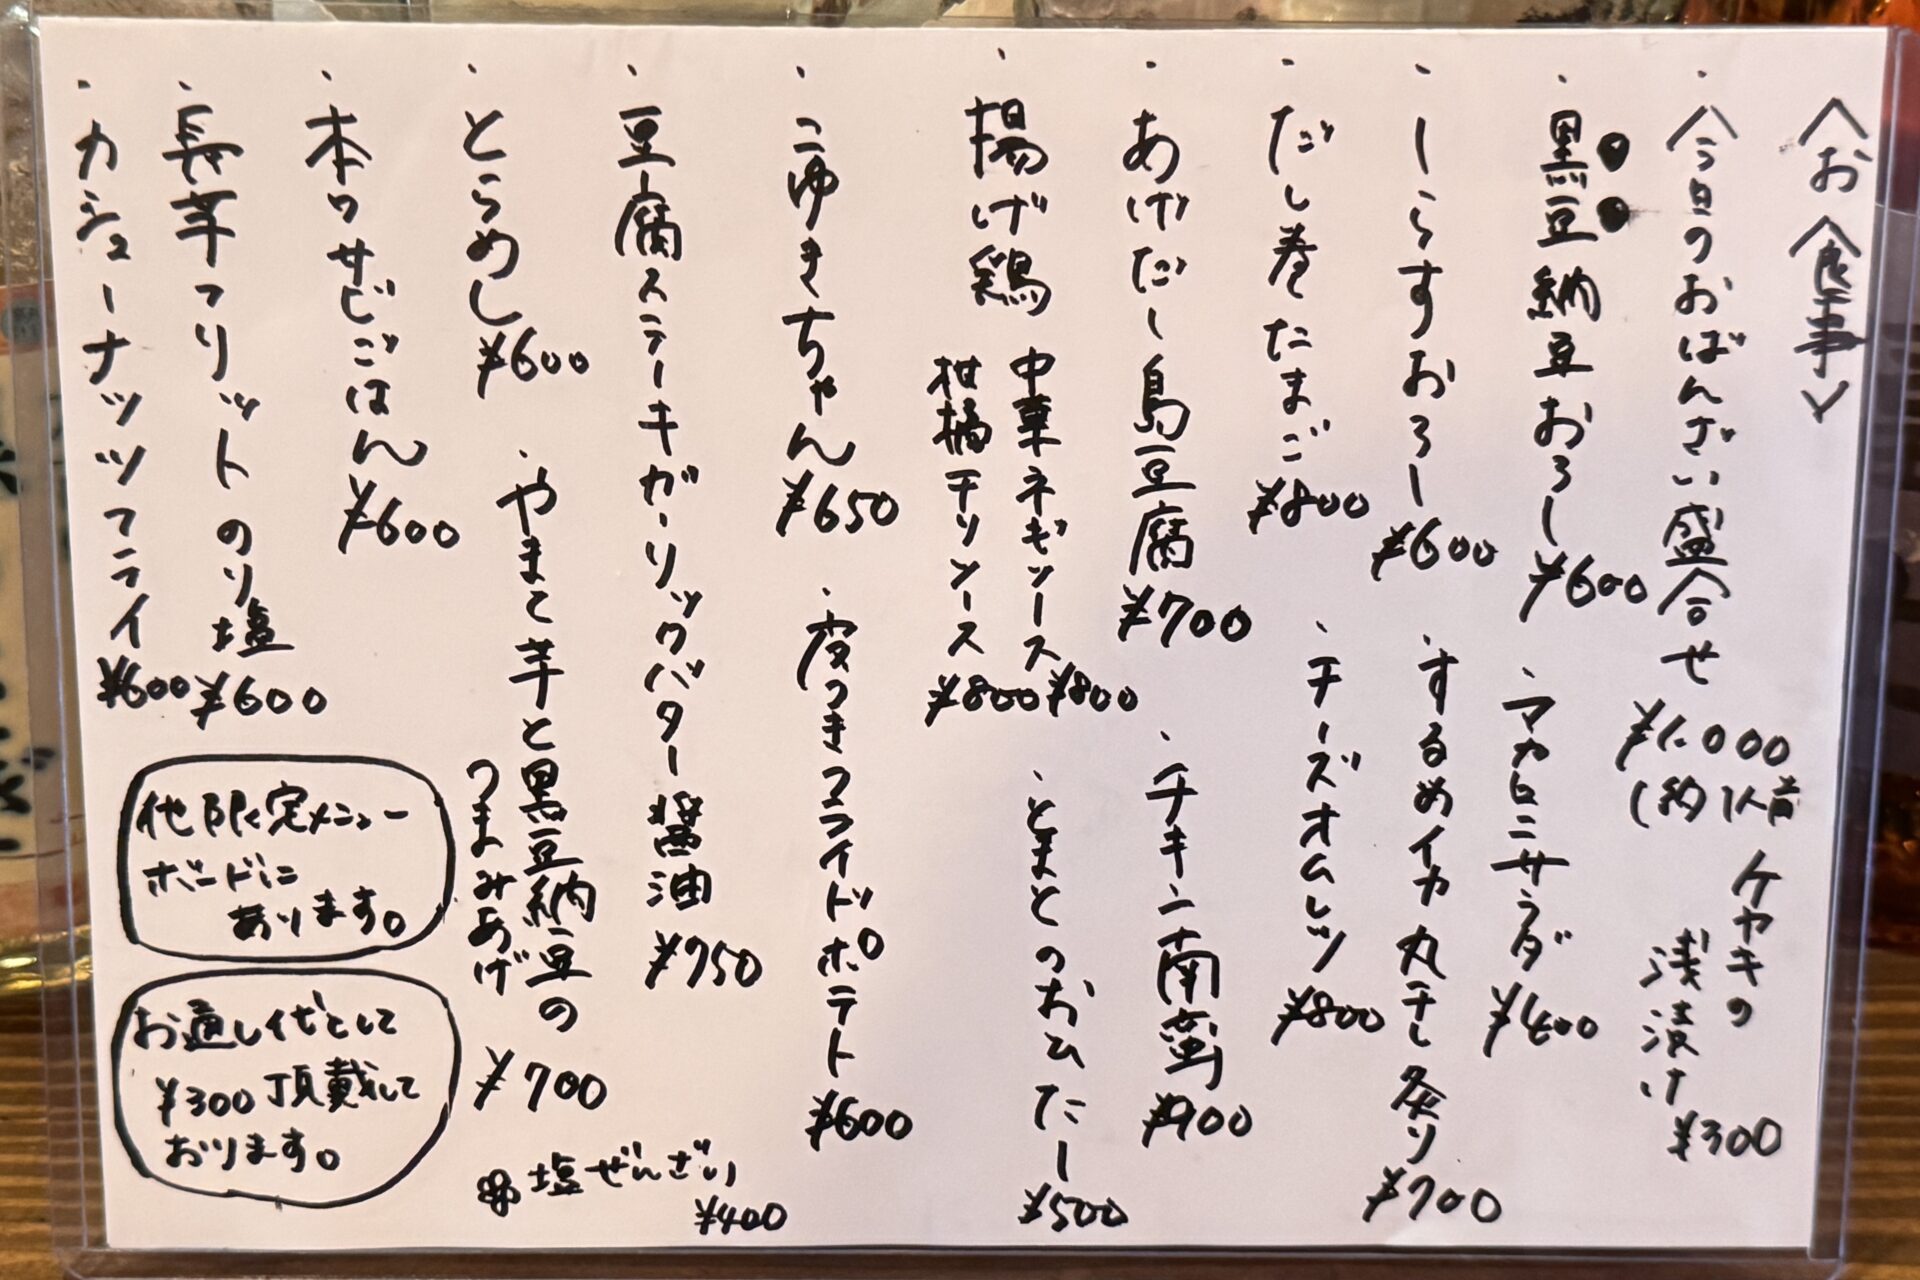 〈お食事〉
・今日のおばんざい盛合せ ¥1.000
(約1人前
ケヤキの
浅漬け
¥300
・黒豆納豆おろし ¥600
・マカロニサラダ ¥400
・しらすおろし ¥600
・するめイカ丸干し炙り ¥700
・だし巻たまご ¥800
・チーズオムレツ ¥800
・あげだし島豆腐 ¥700
・チキン南蛮 ¥900
・揚げ鶏
中華ネギソース ¥800
柑橘チリソース ¥800
・とまとのおひたし ¥500
・こゆきちゃん ¥650
・皮つきフライドポテト ¥600
・豆腐ステーキガーリックバター醤油 ¥750
・とらめし ¥600
・やまと芋と黒豆納豆の
つまみあげ
¥700
・本ワサビごはん ¥600
・長芋フリットのり塩 ¥600
・カシューナッツフライ ¥600
塩ぜんざい
¥400
他限定メニュー
ボードに
あります。
お通し代として
¥300頂戴して
おります。